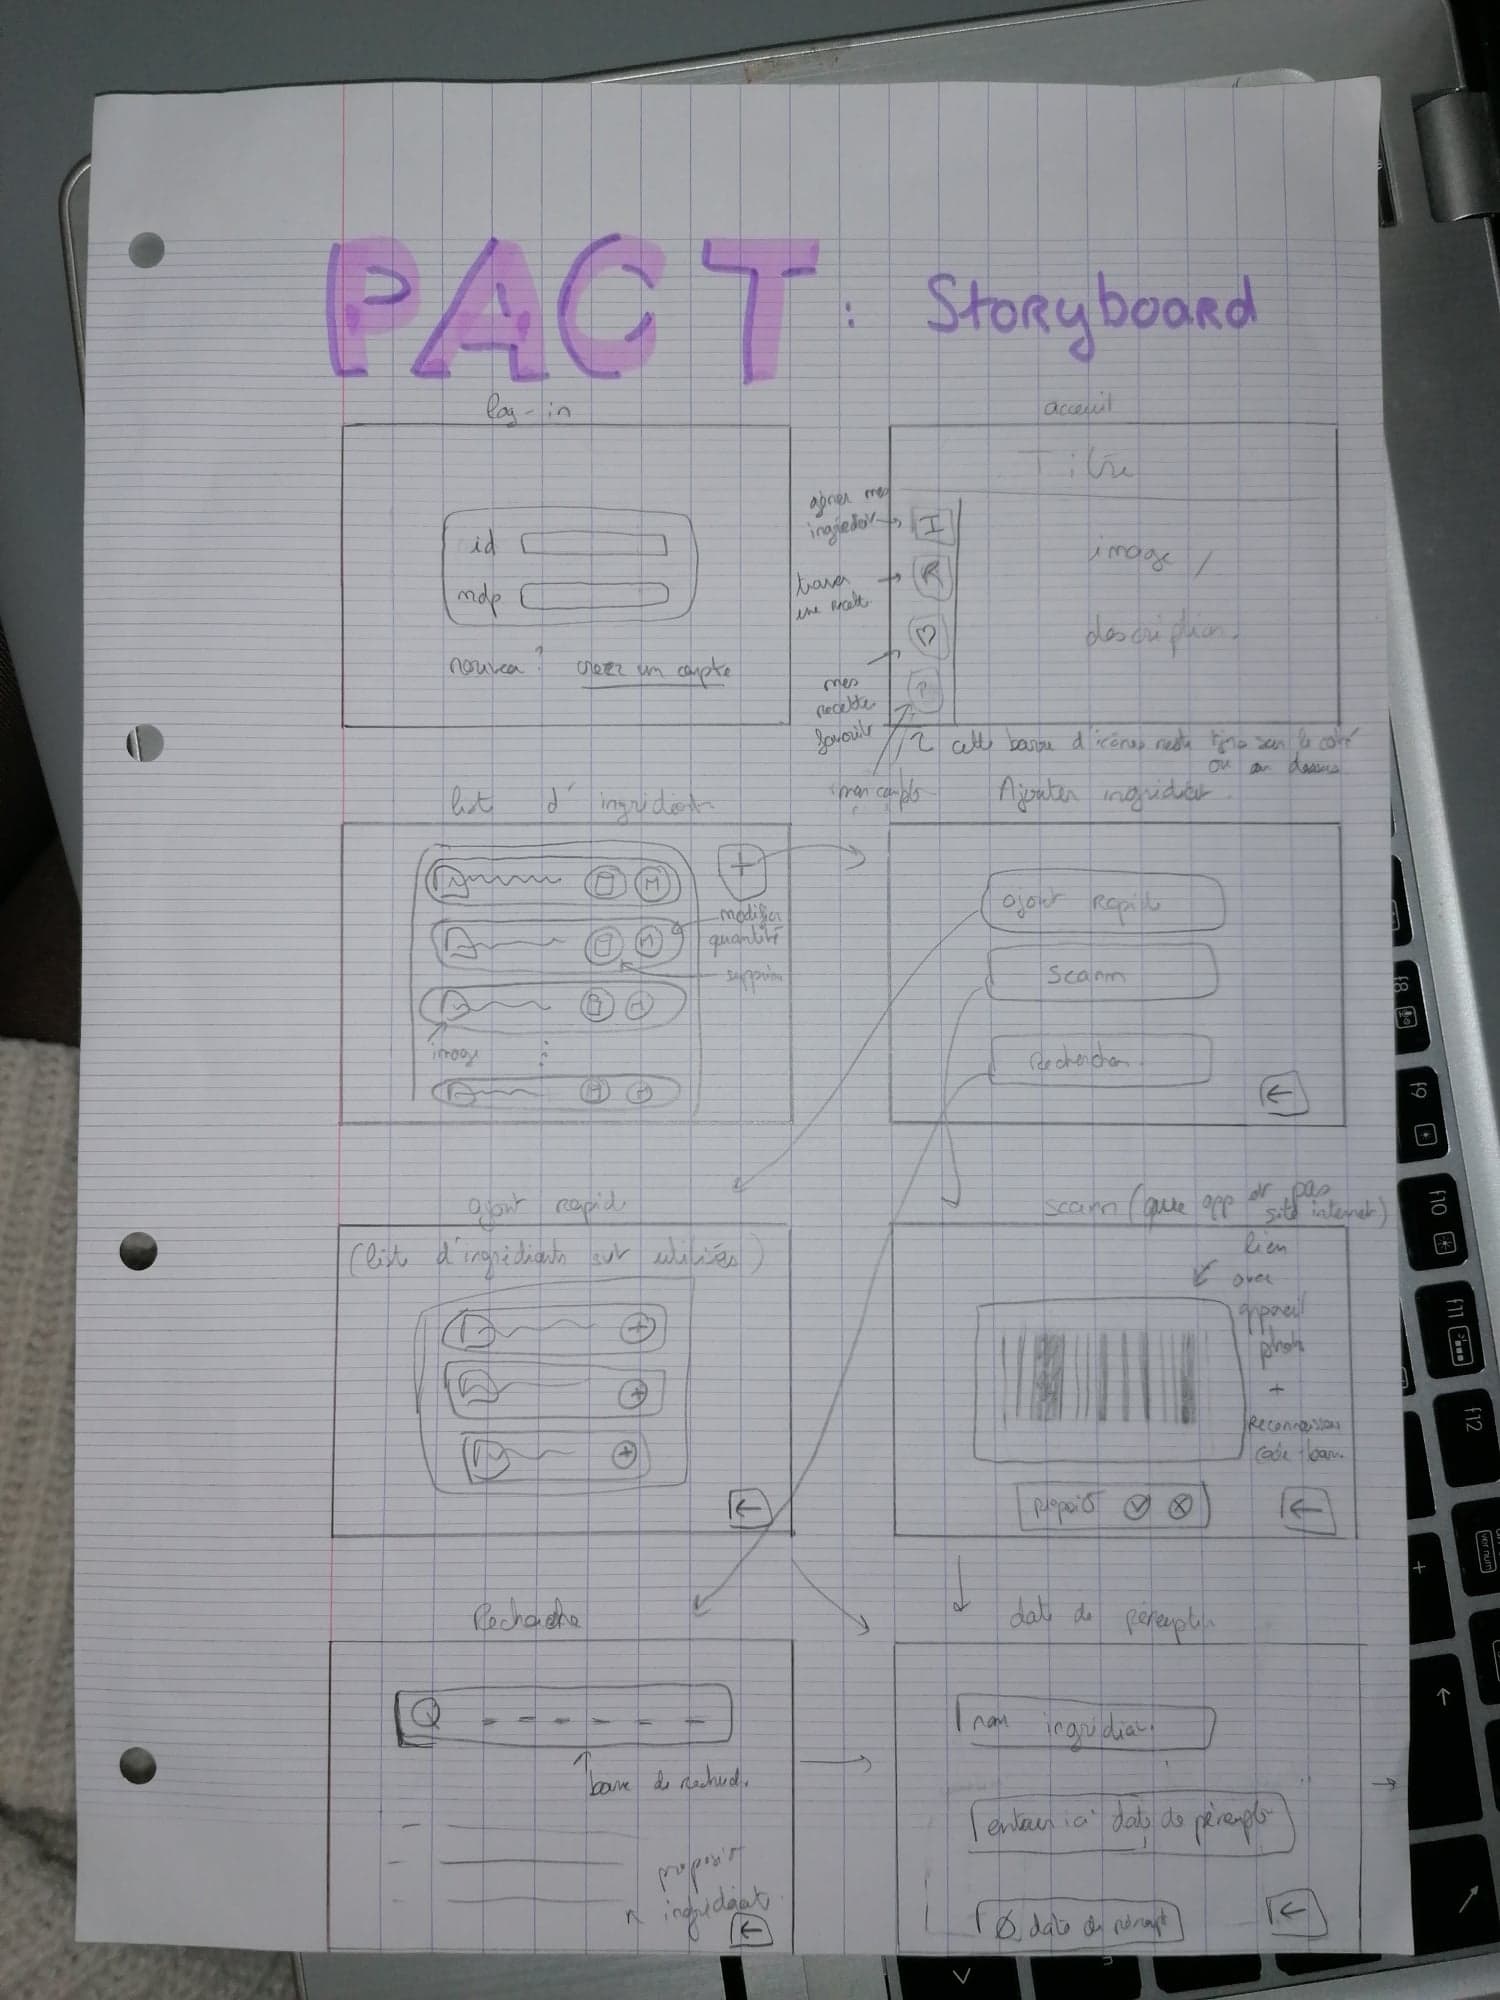 PACT : Storyboard
log-in
id
mdp
nouveau ? créer un compte
acceuil
Titre
image /
description.
I
R
mes
ingrédient
une recette
mes
recette
favorite
mon compte
cette barre d'icônes reste sur le coté
ou en dessus
list d'ingrédient
+
M
M
modifier
quantité
supprimer
M
image
Ajouter ingrédient.
ajout rapide
Scann
Rechercher
←
ajout rapid
(list d'ingrédients svt utilisés)
+
+
+
←
scann (que app et pas
site internet)
lien
avec
appareil
photo
+
Reconnaissan
code-barr.
←
Recherche
barre de recherch.
ingrédient
←
date de péremp.
nom ingrédient.
entrer ici date de péremp
Ø date de péremp
←
f8
f9
f10
f11
f12
ver num
+